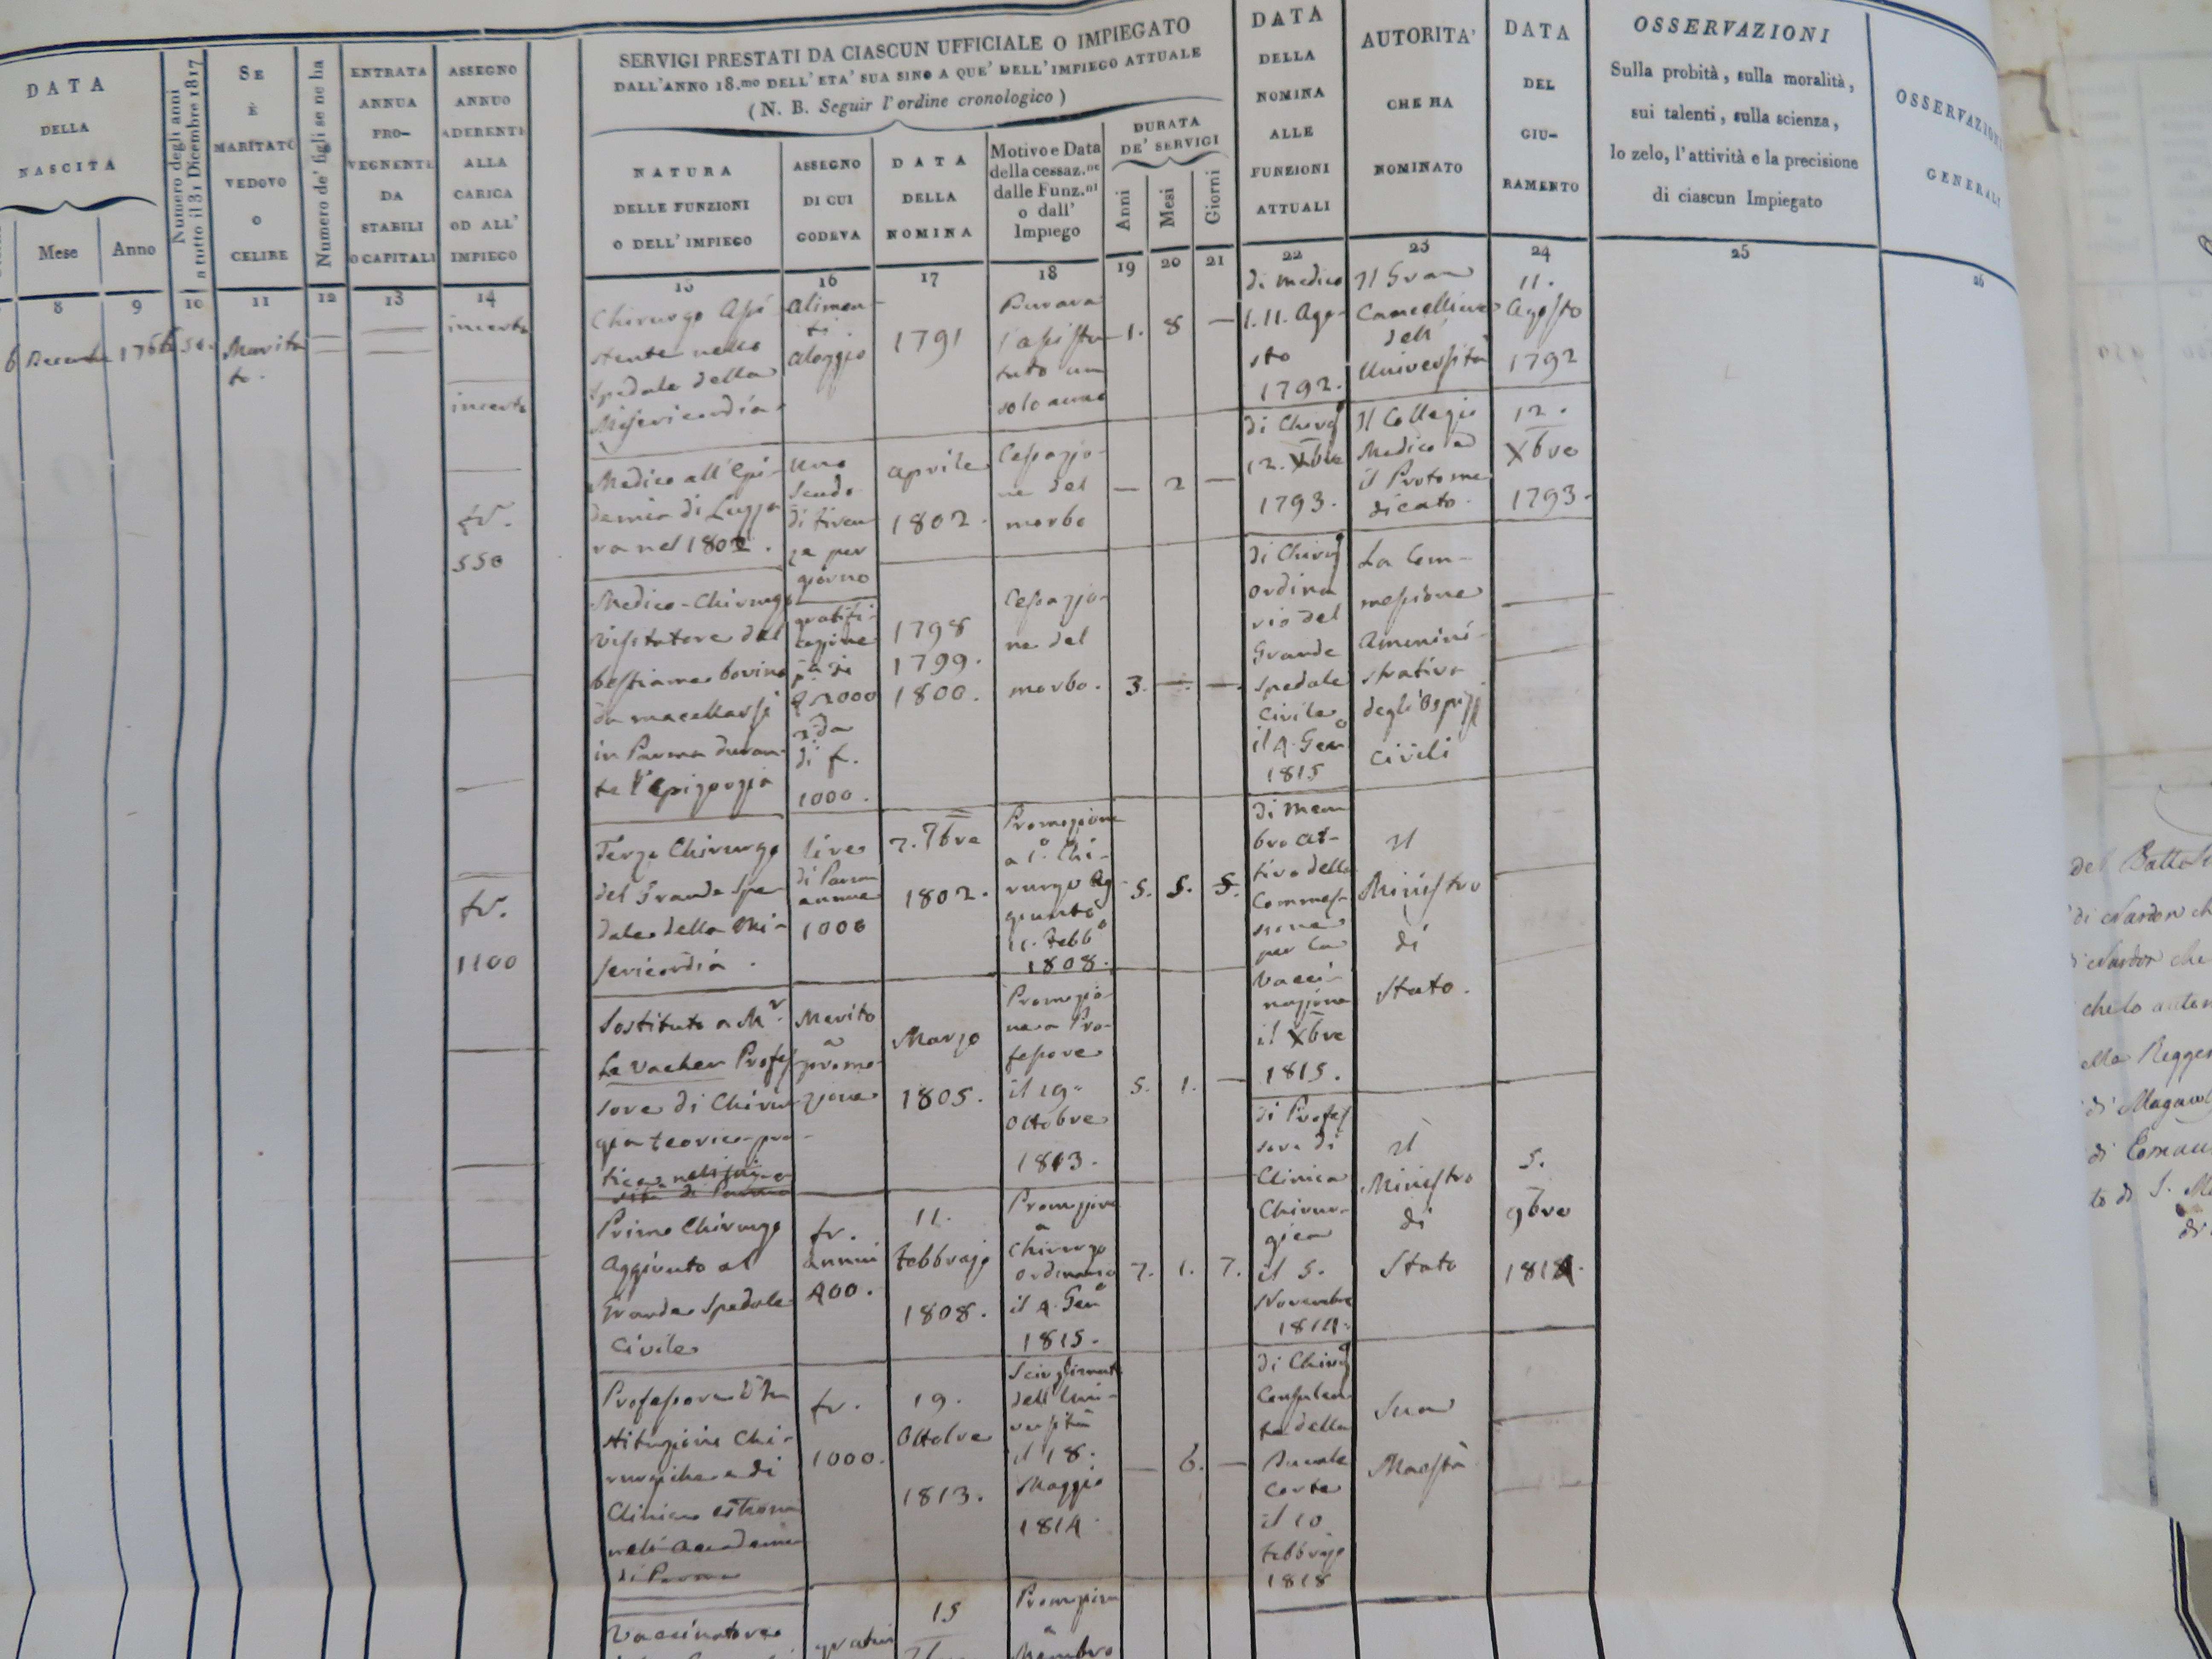 DATA
DELLA
NASCITA
Mese
Anno
Numero degli anni
a tutto il 31 Dicembre 1817
SE
È
MARITATO
VEDOVO
O
CELIBE
Numero de' figli se ne ha
ENTRATA
ANNUA
PRO-
VEGNENTE
DA
STABILI
O CAPITALI
ASSEGNO
ANNUO
ADERENTE
ALLA
CARICA
OD ALL'
IMPIEGO
SERVIGI PRESTATI DA CIASCUN UFFICIALE O IMPIEGATO
DALL'ANNO 18.mo DELL'ETA' SUA SINO A QUE' DELL'IMPIEGO ATTUALE
(N. B. Seguir l'ordine cronologico)
NATURA
DELLE FUNZIONI
O DELL'IMPIEGO
ASSEGNO
DI CUI
GODEVA
DATA
DELLA
NOMINA
Motivo e Data
della cessaz.ne
dalle Funz.ni
o dall'
Impiego
DURATA
DE' SERVIGI
Anni
Mesi
Giorni
DATA
DELLA
NOMINA
ALLE
FUNZIONI
ATTUALI
AUTORITA'
CHE HA
NOMINATO
DATA
DEL
GIU-
RAMENTO
OSSERVAZIONI
Sulla probità, sulla moralità,
sui talenti, sulla scienza,
lo zelo, l'attività e la precisione
di ciascun Impiegato
OSSERVAZIONI
GENERALI
8 9 10 11 12 13 14 15 16 17 18 19 20 21 22 23 24 25 26
6
Marita
to.
incerto
incerto
fr.
550
fr.
1100
Chirurgo Assi-
stente nello
Spedale della
Misericordia.
Alimen-
ti.
Alloggio
1791
Durava
l'assisten
tato un
solo anno
1. 8 —
di Medico
l. 11. Ago-
sto
1792.
Il Gran
Cancelliere
dell'
Università
11.
Agosto
1792
Medico all'Epi-
demia di Luzza-
ra nel 1802.
uno
Scudo
di Firen
ze per
giorno
Aprile
1802.
Cessazio-
ne del
morbo
— 2 —
di Chirg
12. Xbre
1793.
Il Collegio
Medico ed
il Protome
dicato.
12.
Xbre
1793.
Medico-Chirurgo
visitatore del
bestiame bovino
da macellarsi
in Parma duran-
te l'Epizoozia
gratifi-
cazione
p.a di
2000
2.da
di f.
1000.
1798
1799.
1800.
Cessazio-
ne del
morbo.
3. — —
di Chirg
ordina
rio del
Grande
Spedale
Civile
il 4. Gen
1815
La Com-
messione
Ammini-
strativa
degli Ospizj
Civili
Terzo Chirurgo
del Grande Spe-
dale della Mi-
sericordia.
lire
di Parm
annue
1000
7bre
1802.
Promozione
a 1.o Chi-
rurgo Ag
giunto
11. Febb
1808.
5. 5. 5.
di Mem
bro at-
tivo della
Commes-
sione
per la
vacci-
nazione
il Xbre
1815.
Il
Ministro
di
Stato.
Sostituto a Mr.
La Vacher Profes
sore di Chirur
gia teorico-pra-
tica
Merito
a
promo-
zione
Marzo
1805.
Promozio-
ne a Pro-
fessore
il 19.
Ottobre
1813.
5. 1. —
di Profes
sore di
Clinica
Chirur-
gica
il 5.
Novembre
1814.
Il
Ministro
di
Stato
5.
9bre
1814.
Primo Chirurgo
Aggiunto al
Grande Spedale
Civile
fr.
annui
400.
11.
Febbrajo
1808.
Promozione
a
Chirurgo
ordinario
il 4. Gen
1815.
7. 1. 7.
Professore d'In
stituzioni Chi-
rurgiche e di
Clinica esterna
nell'Accademia
di Parma
fr.
1000.
19.
Ottobre
1813.
Scioglimento
dell'Uni-
versità
il 18.
Maggio
1814.
— 6. —
di Chirg
Consulen
te della
Ducale
Corte
il 10
Febbrajo
1818
Sua
Maestà
Vaccinatore
gratui
15
Promozione
a
Membro